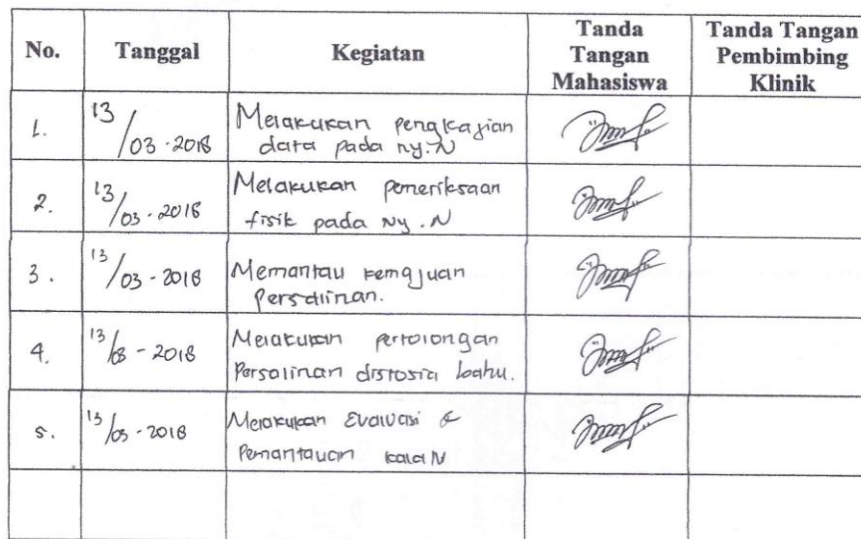 No. Tanggal Kegiatan Tanda Tangan Mahasiswa Tanda Tangan Pembimbing Klinik
1. 13/03-2018 Melakukan pengkajian
data pada ny.N
2. 13/03-2018 Melakukan pemeriksaan
fisik pada Ny.N
3. 13/03-2018 Memantau kemajuan
Persalinan.
4. 13/03-2018 Melakukan pertolongan
Persalinan distosia bahu.
5. 13/03-2018 Melakukan Evaluasi &
Pemantauan kala IV